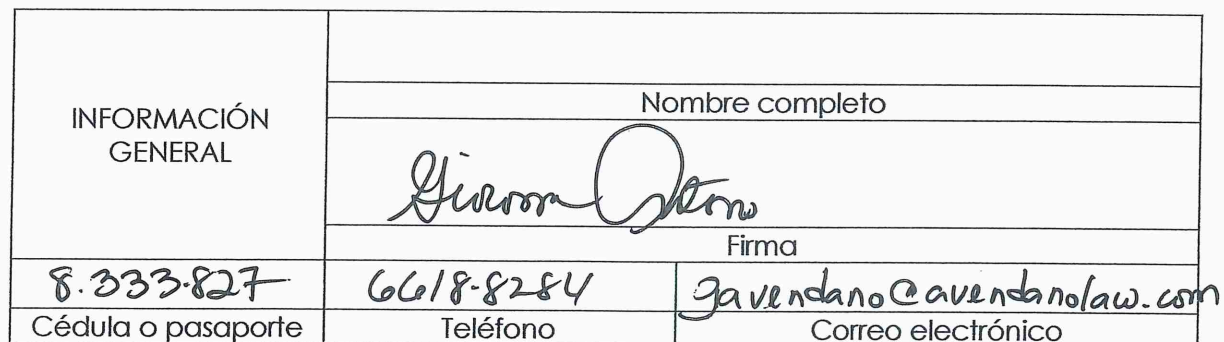 INFORMACIÓN
GENERAL
Nombre completo
Firma
8.333-827 6618-8284 gavendano@avendanolaw.com
Cédula o pasaporte Teléfono Correo electrónico